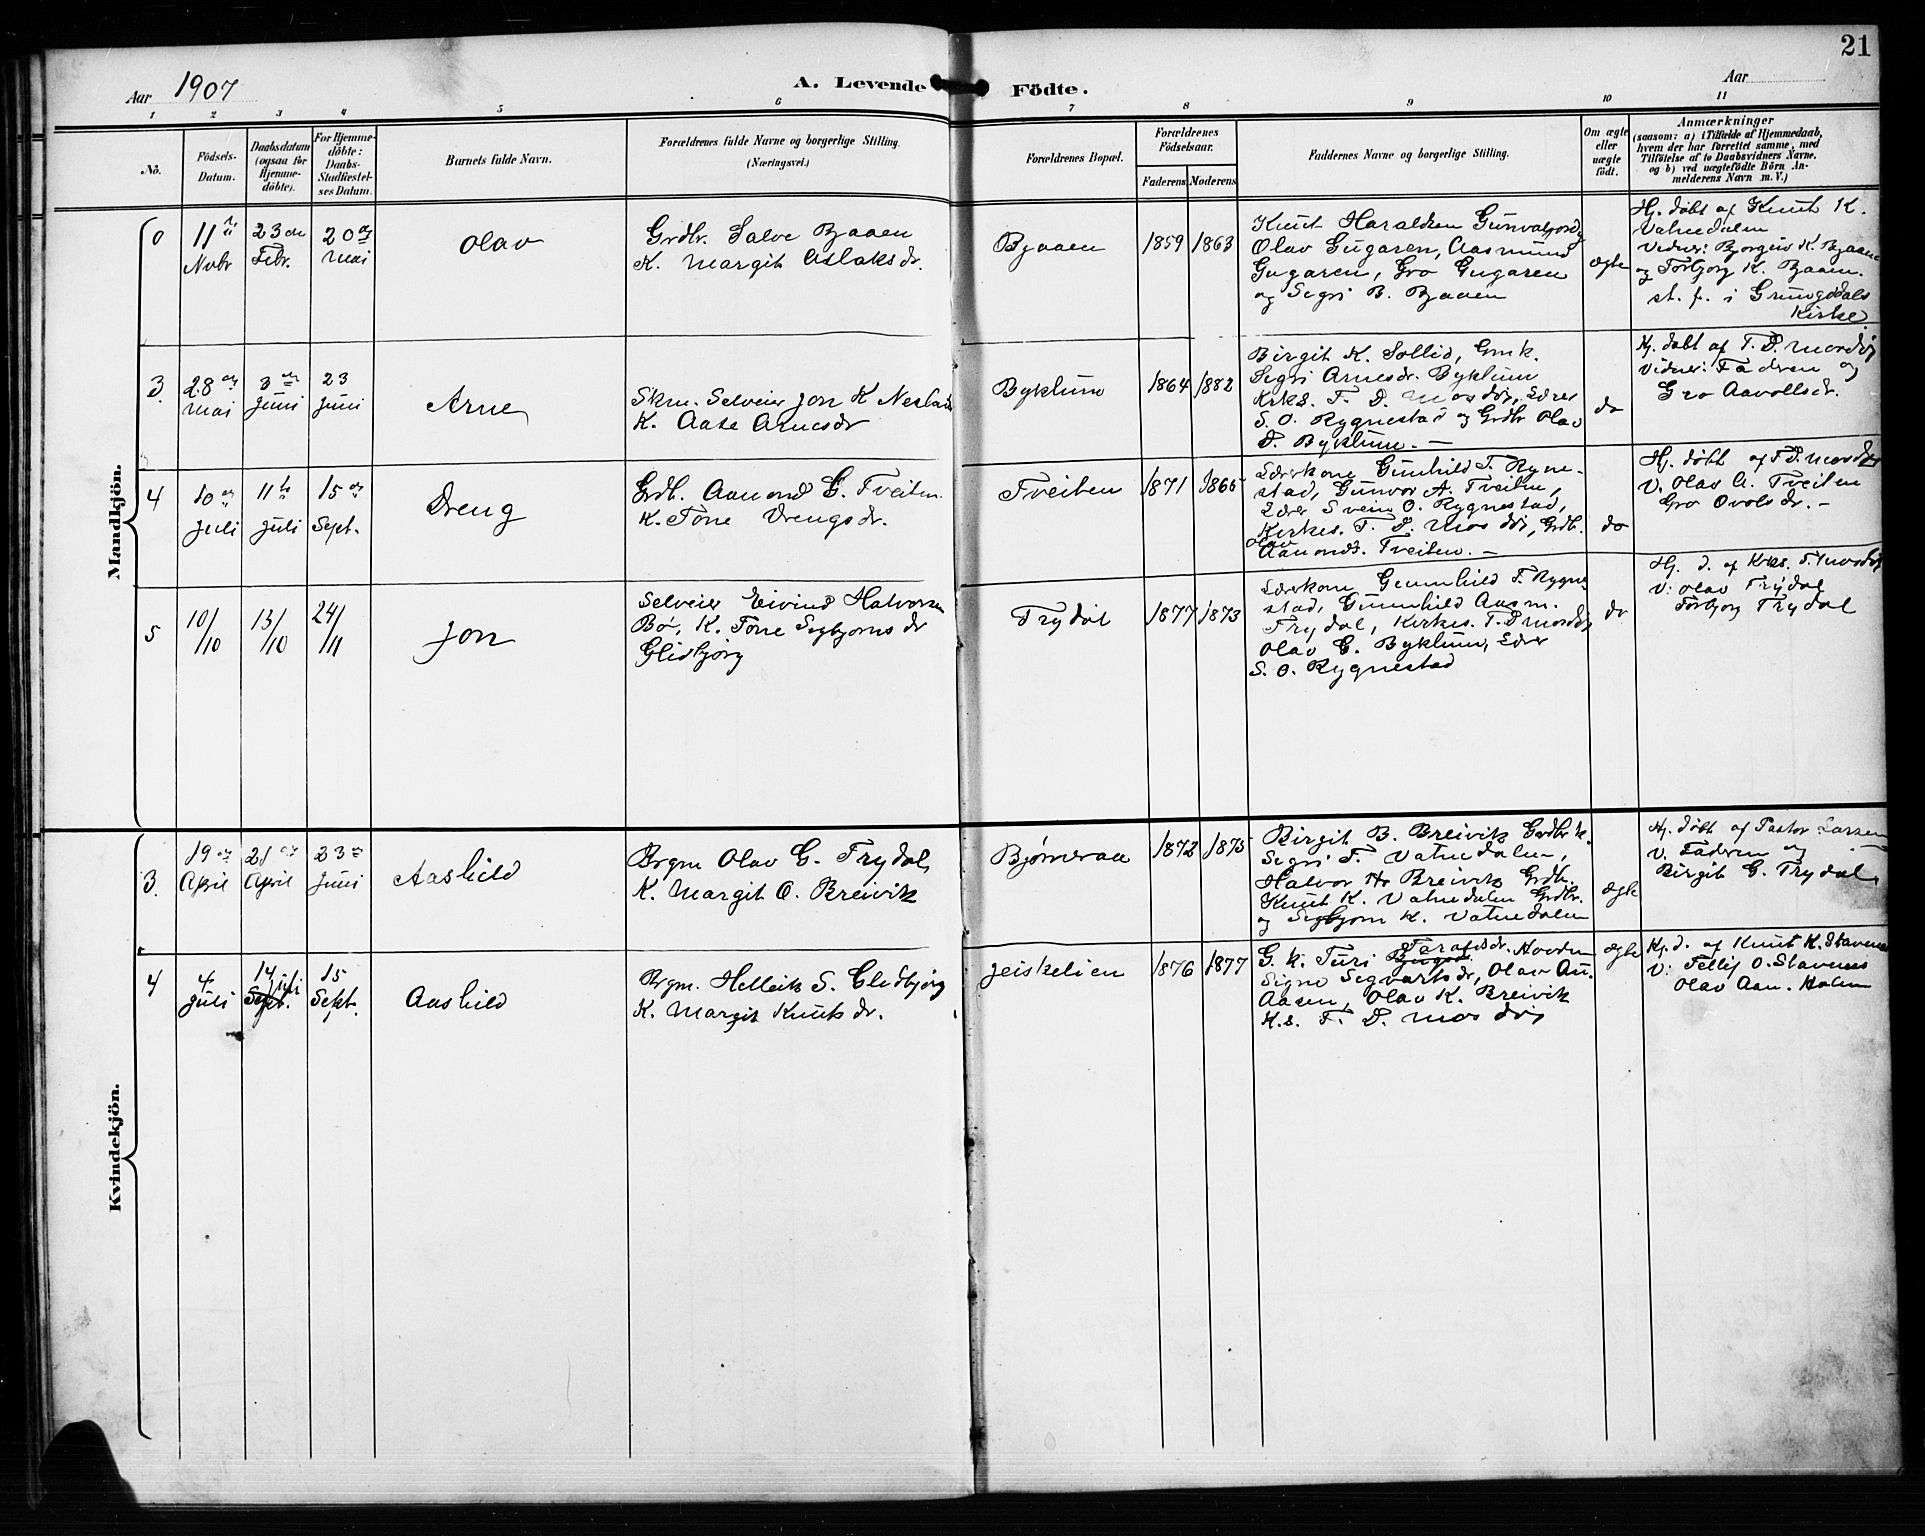 21
Aar 1907
A. Levende Födte.
Aar
1 2 3 4 5 6 7 8 9 10 11
No.
Födsels-
Datum.
Daabsdatum
(ogsaa for
Hjemme-
döbte).
For Hjemme-
döbte:
Daabs-
Stadfæstel-
ses Datum.
Barnets fulde Navn.
Forældrenes fulde Navne og borgerlige Stilling.
(Næringsvei.)
Forældrenes Bopæl.
Forældrenes
Födselsaar.
Faderens
Moderens
Faddernes Navne og borgerlige Stilling.
Om ægte
eller
uægte
födt.
Anmærkninger
(saasom: a) i Tilfælde af Hjemmedaab,
hvem der har forrettet samme, med
Tilföielse af to Daabsvidners Navne.
og b) ved uægtefödte Börn An-
melderens Navn m. V.)
Mandkjön.
0
11
Nvbr
23
Febr.
20
mai
Olav
Grdbr. Salve Bjaaen
K. Margit Aslaksdr.
Bjaaen
1859
1863
Knut Haraldsen
Olav Gugaren, Aasmund
Gugaren, Gro Gugaren
og Sigri B. Bjaaen
ægte
Hj. døbt af Knut K.
Vatnedalen
Vidner: Bjorgus K. Bjaaen
og Torbjorg K. Bjaaen.
st. f. i Grungedals
Kirke.
3.
28
mai
3
juni
23
Juni
Arne
Skm. Selveier Jon K
K. Aase Arnesdr
Byklum
1864
1882
Birgit K. Sollid, Gmk.
Sigri Arnesdr. Byklum
Krks. T. D. Mosdøj, Lærer
S. O. Rygnestad og Grdbr Olav
D. Byklum. —
do
Hj. døbt af T. D. Mosdøj
Vidner: Faderen og
Gro Aavollsdr.
4
10
Juli
11
Juli
15
Sept.
Dreng
Grdb. Aamond G. Tveiten
K. Tone Drengsdr.
Tveiten
1871
1865
Lærerkone Gunhild T. Rygne-
stad, Gunvor A. Tveiten,
Lærer Svein O. Rygnestad,
Kirkes. T. D. Mosdøj, Grdb.
Olav
Aamonds. Tveiten. —
do
Hj. døbt af T. D. Mosdøj
V. Olav A. Tveiten
Gro Ovolsdr. —
5
10/10
13/10
24/11
Jon
Selveier Eivind Halvorsen
Bø, K. Tone Sigbjorns dr
Glidbjorg
Trydal
1877
1873
Lærerkone Gunnhild T. Rygne-
stad, Gunnhild Aasm.
Trydal, Kirkes. T. D. Mosdøj
Olav G. Byklum, Lærer
S. O. Rygnestad
do
Hj. d. af Krks. T. Mosdøj
V: Olav Trydal
Torbjorg Trydal
Kvindekjön.
3.
19
April
21
April
23
Juni
Aashild
Brgm Olav G. Trydal,
K. Margit O. Breivik
Bjørneraa
1872
1875
Birgit B. Breivik Grdbr k.
Sigri T. Vatnedalen,
Halvor H. Breivik Grdb.
Knut K. Vatnedalen Grdbr.
og Sigbjorn K. Vatnedalen
ægte
Hj. døbt af Pastor Larsen
V. Faderen og
Birgit G. Trydal
4
4
Juli
14
Juli
Sept.
15
Sept.
Aashild
Brgm. Helleik S. Glidbjorg
K. Margit Knuts dr.
Jeiskelien
1876
1877
G. k. Turi Taraldsdr. Hovden
Signe Sigvartsdr, Olav Au.
Aasen, Olav K. Breivik
K.s. T. D. Mosdøj
ægte
Hj. d. af Knut K. Stavenes
V: Fellif O. Stavenes
Olav Aan. Holen